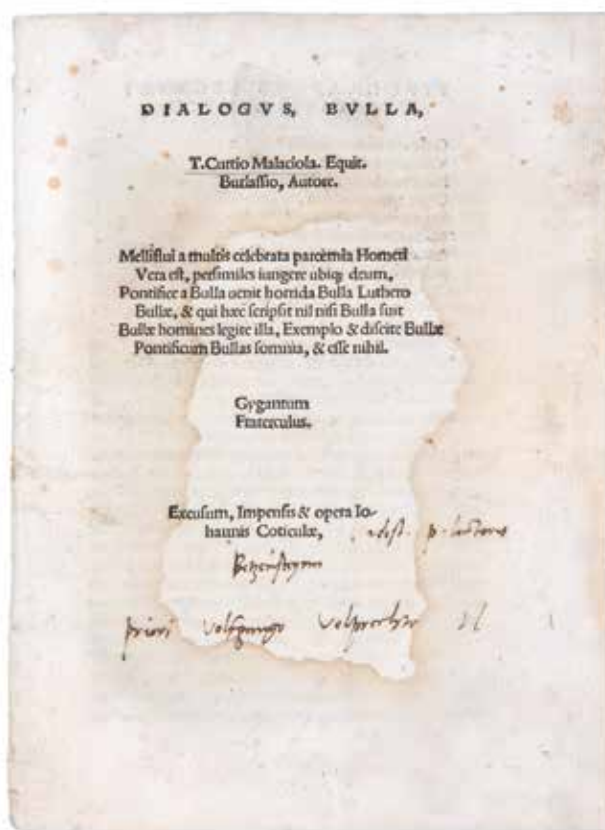 DIALOGVS, BVLLA,
T. Curtio Malaciola. Equit.
Burlassio, Autore.
Melliflui a multis celebrata parœmia Homeri
Vera est, persimiles iungere ubiq; deum,
Pontifice a Bulla uenit horrida Bulla Luthero
Bullæ, & qui hæc scripsit nil nisi Bulla sunt
Bullæ homines legite illa, Exemplo & discite Bullæ
Pontificum Bullas somnia, & esse nihil.
Gygantum
Fraterculus.
Excusum, Impensis & opera Io-
hannis Coticulæ,
priori